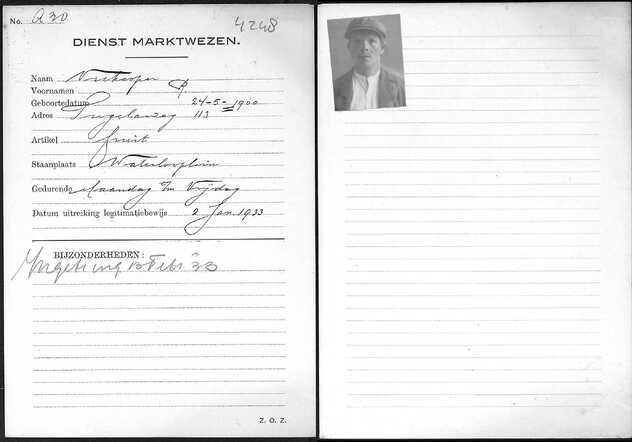 No. A 30
4248
DIENST MARKTWEZEN.
Naam
Voornamen R.
Geboortedatum 24-5-1900
Adres Ringdijk 113
Artikel fruit
Staanplaats Waterlooplein
Gedurende Maandag t/m Vrijdag
Datum uitreiking legitimatiebewijs 2 Jan. 1933
BIJZONDERHEDEN:
13 Feb. 33
Z. O. Z.